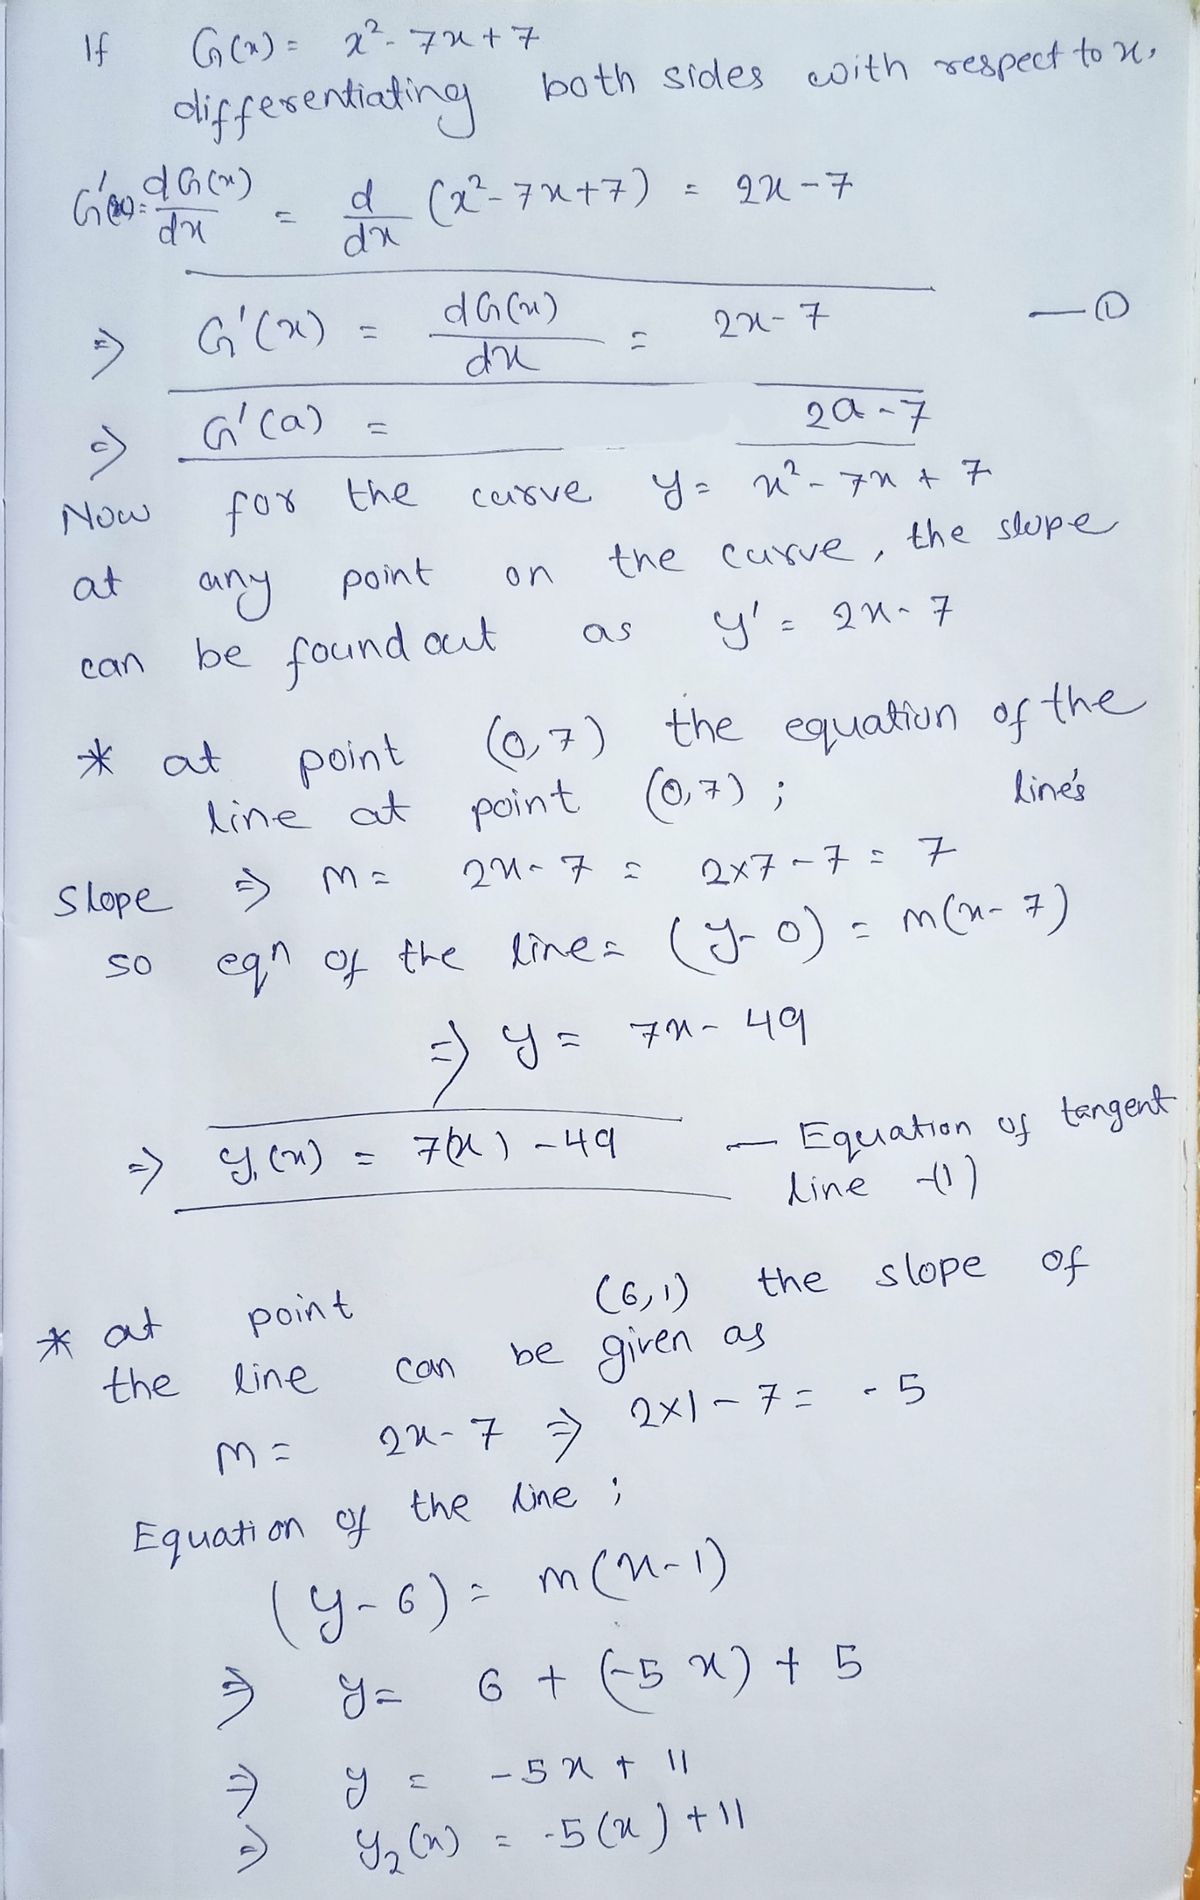 If G(x) = x² - 7x + 7
differentiating both sides with respect to x,
G'(x) = dG(x)/dx = d/dx (x² - 7x + 7) = 2x - 7
⇒ G'(x) = dG(x)/dx = 2x - 7 — ①
⇒ G'(a) = 2a - 7
Now for the curve y = x² - 7x + 7
at any point on the curve, the slope
can be found out as y' = 2x - 7
* at point (0,7) the equation of the
line at point (0,7) ; line's
slope ⇒ m = 2x - 7 = 2×7 - 7 = 7
so eqn of the line = (y - 0) = m(x - 7)
⇒ y = 7x - 49
⇒ y₁(x) = 7(x) - 49 — Equation of tangent
line -(1)
* at point (6,1) the slope of
the line can be given as
m = 2x - 7 ⇒ 2×1 - 7 = -5
Equation of the line ;
(y - 6) = m(x - 1)
⇒ y = 6 + (-5x) + 5
⇒ y = -5x + 11
⇒ y₂(x) = -5(x) + 11